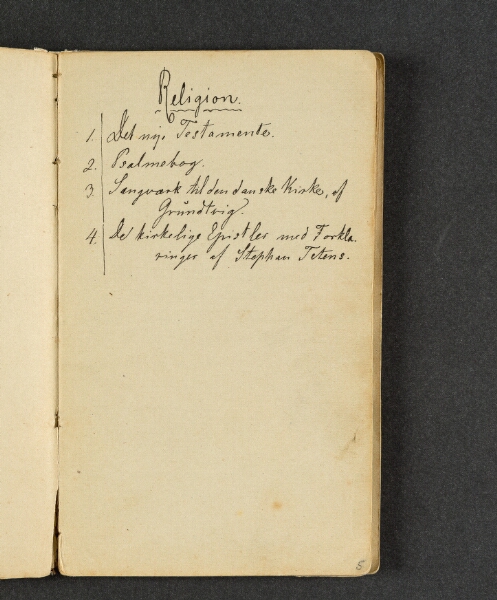 Religion.
1. Det nye Testamente.
2. Psalmebog.
3. Sangværk til den danske Kirke, af
Grundtvig.
4. De kirkelige Epistler med Forkla-
ringer af Stephan Tetens.
5